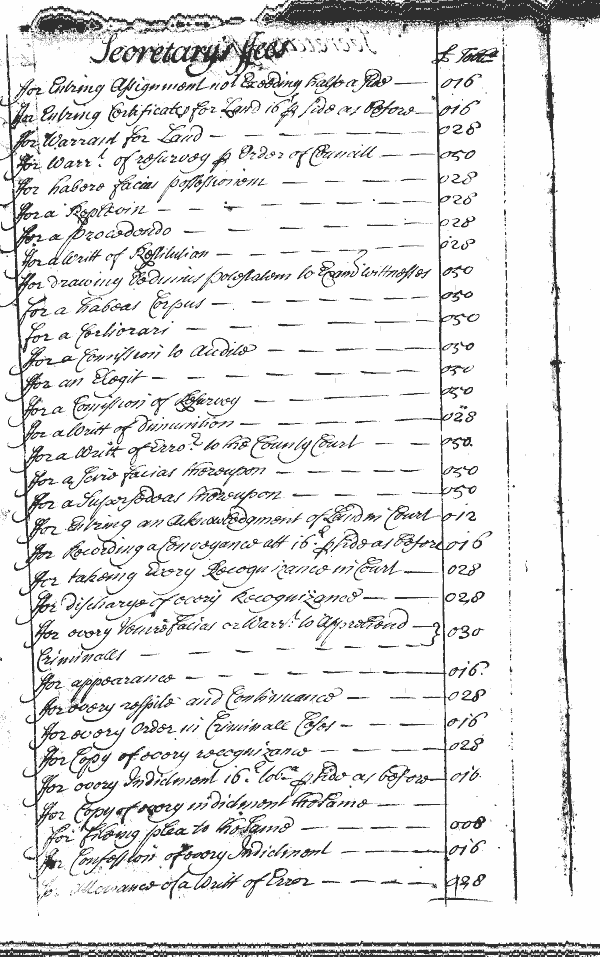 Secretary's ffees
£ Tobbo
ffor Entring Assignment not Exceeding halfe a side 016
ffor Entring Certificates for Land 16 p side as before 016
ffor Warrant for Land 028
ffor Warrt. of resurvey p Order of Councill 050
ffor habere facias possessionem 028
ffor a Replevin 028
ffor a procedendo 028
ffor a Writt of Restitution 028
ffor drawing Dedimus potestatem to Examd wittnesses 050
ffor a habeas Corpus 050
ffor a Certiorari 050
ffor a Comission to Audite 050
ffor an Elegit 050
ffor a Comission of Resurvey 050
ffor a Writt of Diminution 028
ffor a Writt of Error. to the County Court 050
ffor a Scire facias thereupon 050
ffor a Supersedeas thereupon 050
ffor Entring an acknowledgment of Land in Court 012
ffor Recording a Conveyance att 16 p side as before 016
ffor takeing every Recognizance in Court 028
ffor discharge of every Recognizance 028
ffor every Venire facias or Warrt. to Apprehend 030
Criminalls
ffor appearance 016
ffor every respite and Continuance 028
ffor every Order in Criminall Cases 016
ffor Copy of every recognizance 028
ffor every Indictment 16 tobo p side as before 016
ffor Copy of every indictment the same
ffor fileing plea to the same 008
ffor Confession of every Indictment 016
ffor allowance of a Writt of Error 028